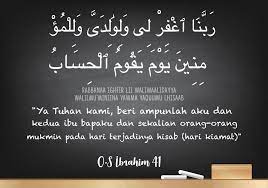 رَبَّنَا اغْفِرْ لِى وَلِوَٰلِدَىَّ وَلِلْمُؤْ
مِنِينَ يَوْمَ يَقُومُ الْحِسَابُ
RABBANAA IGHFIR LII WALIWAALIDAYYA
WALILMU'MINIINA YAWMA YAQUUMU LHISAAB
"Ya Tuhan kami, beri ampunlah aku dan
kedua ibu bapaku dan sekalian orang-orang
mukmin pada hari terjadinya hisab (hari kiamat)"
Q-S Ibrahim 41